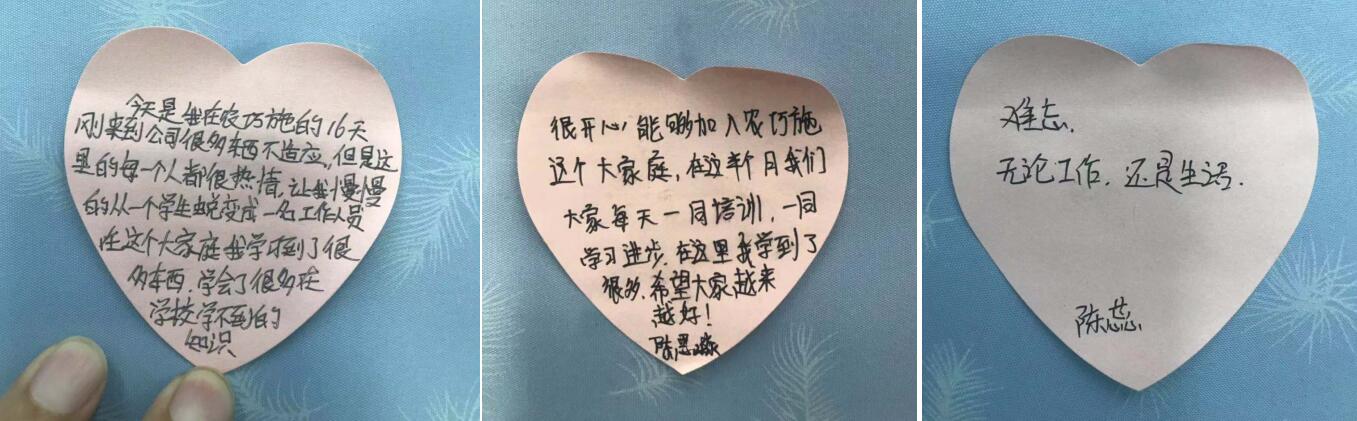 今天是我在农巧施的16天
刚来到公司很多东西不适应,但是这
里的每一个人都很热情,让我慢慢
的从一个学生蜕变成一名工作人员
在这个大家庭我学习到了很
多东西,学会了很多在
学校学不到的
知识
很开心能够加入农巧施
这个大家庭,在这半个月我们
大家每天一同培训,一同
学习进步,在这里我学到了
很多,希望大家越来
越好!
陈思
难忘.
无论工作,还是生活.
陈蕊